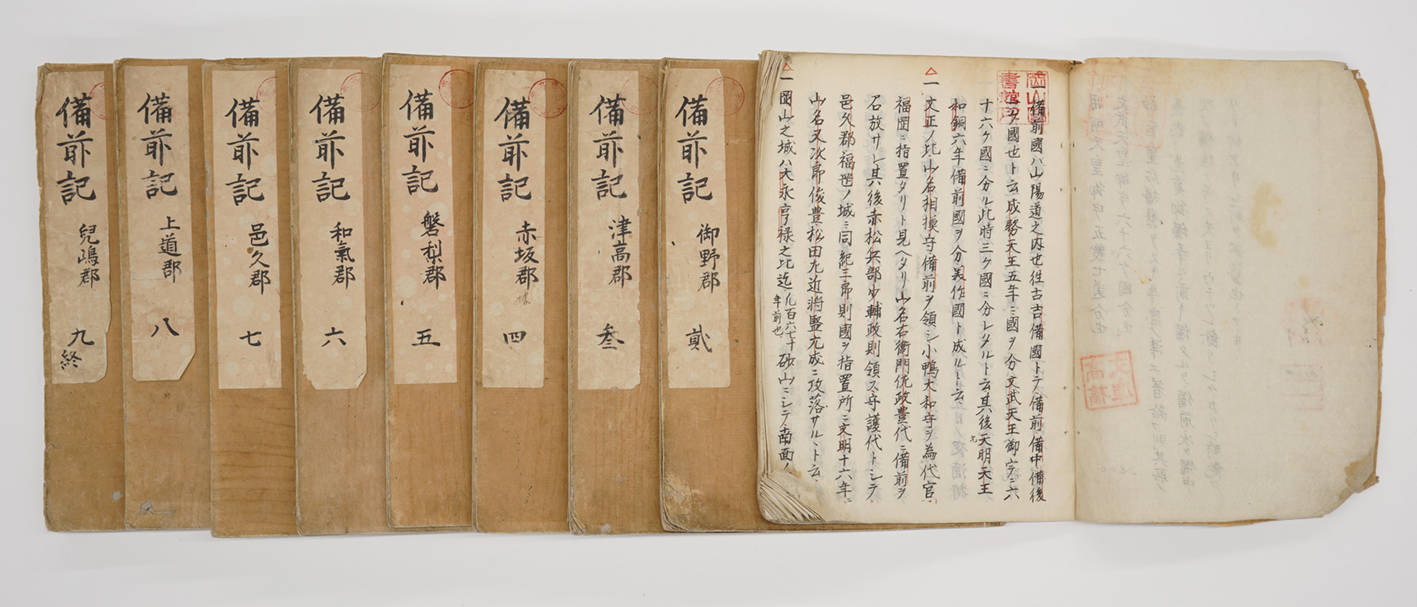 備前國ハ山陽道之内也往古吉備國トテ備前備中備後
三ケ國也ト云成務天王五年ニ國ヲ分文武天王御宇ニ六
十六ケ國ニ分ル此時三ケ國ニ分レタルト云其後天明天王
元
和銅六年備前國ヲ分美作國ト成ルト云
一文正ノ比山名相模守備前ヲ領シ小鴨大和守ヲ為代官
福岡ニ指置タリト見ヘタリ山名右衛門佐政豊代ニ備前ヲ
サレ其後赤松兵部少輔政則領ス守護代トシテ
邑久郡福岡ノ城ニ同紀三郎則國ヲ指置所ニ文明十六年ニ
山名又次郎俊豊松田左近將監元成ニ攻落サルト云
一岡山之城ハ大永享禄之比迄凡百六七十年前也砂山ニシテ南面ノ
備前記 御野郡 貳
備前記 津高郡 叁
備前記 赤坂郡 四
備前記 磐梨郡 五
備前記 和氣郡 六
備前記 邑久郡 七
備前記 上道郡 八
備前記 兒嶋郡 九終